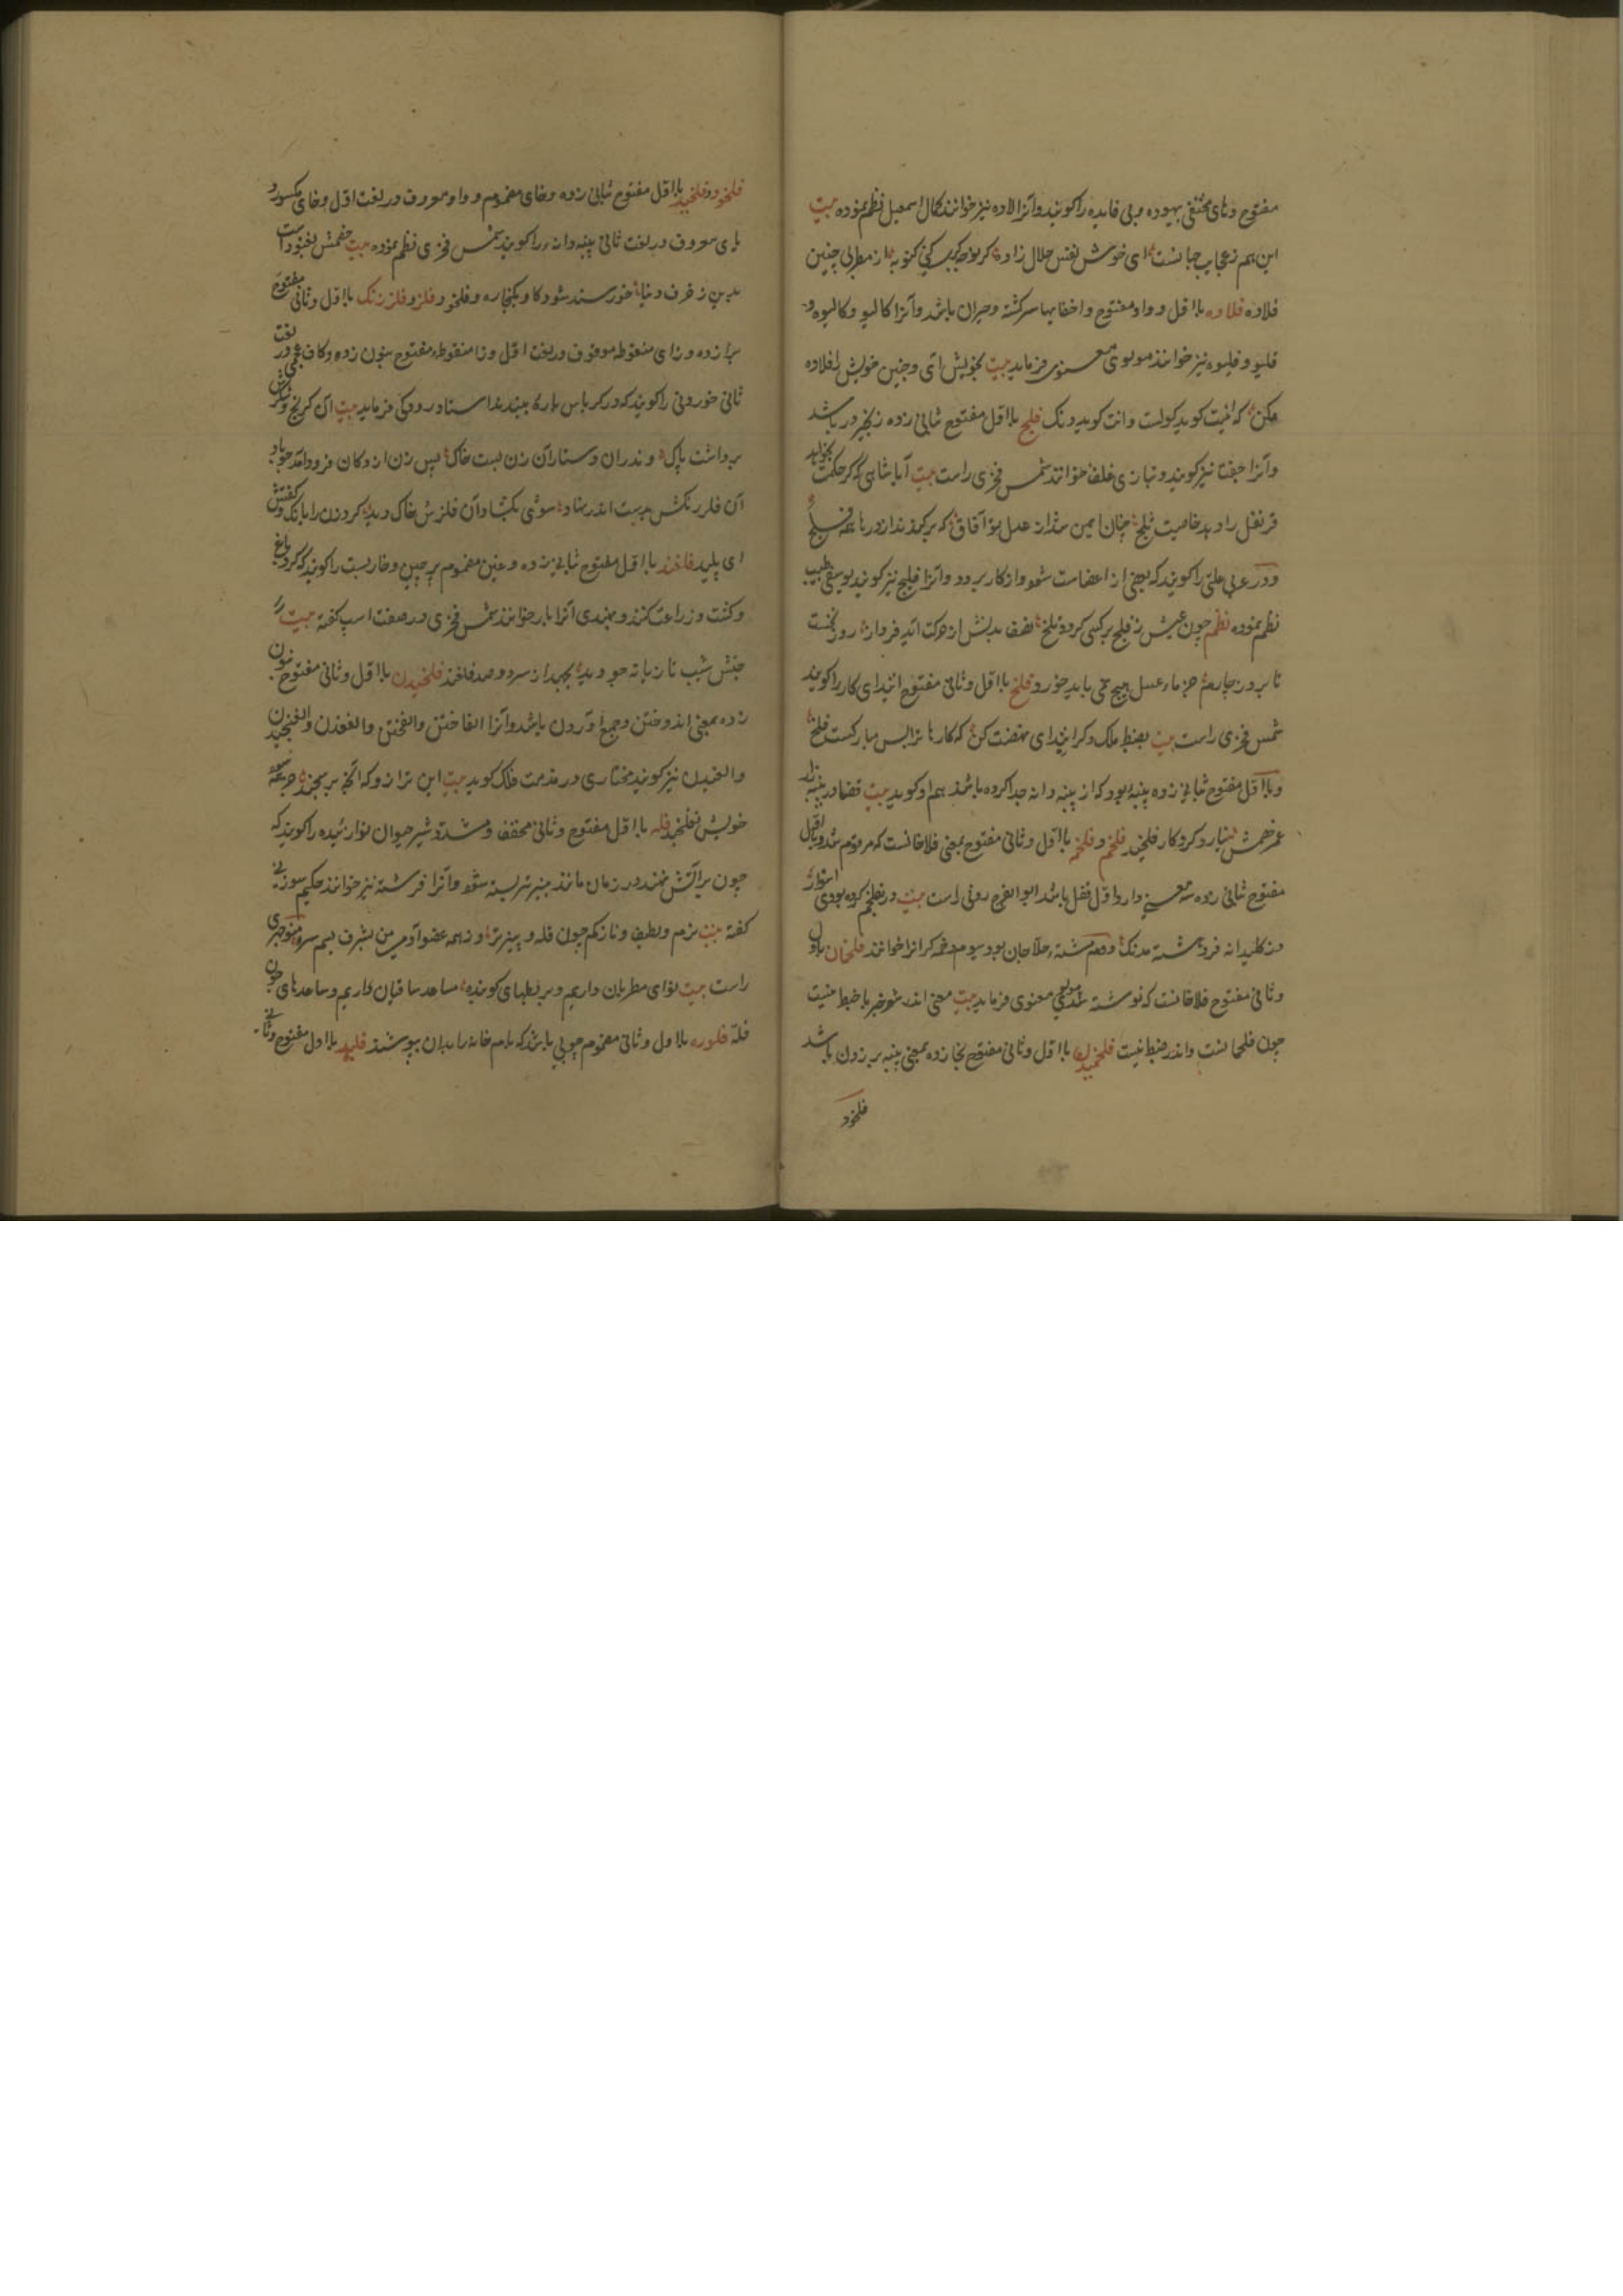 مفتوح وهای مختفی بیهوده و بی فایده را گویند و آنرا الاده نیز خوانند کمال اسمعیل نظم نموده بیت
این هم ز عجایب جهانست ای خوش نفس حلال زاده کز مطربی چنین
فلاده فلاوه با اول و واو مفتوح و اخفا بها سرگشته و حیران باشد و آنرا کالیو و کالیوه و
فلیو و فلیوه نیز خوانند مولوی معنوی فرماید بیت بخویش آی و چنین خویش را فلاده
مکن که اینت کوید کولست و آنت کوید دنک فلج با اول مفتوح بثانی زده زنجیر در باشد
و آنرا جفت نیز گویند و بتازی غلق خوانند شمس فخری راست بیت آیا شاهی که گر حکمت بخواهد
قرنفل را دهد خاصیت ثلج چنان ایمن شد از عدل تو آفاق که بر کس ندارد با فلج
و در عربی علتی را گویند که بعضی از اعضا سست شود و از کار برود و آنرا فلیج نیز گویند یوسفی طبیب
نظم نموده نظم چون عیش ز فلج بر کسی گردد تلخ نصف بدنش از حرکت آید فرو روز نخست
تا بروز چارم جز ماء عسل هیچ نمی باید خورد فلخ با اول و ثانی مفتوح ابتدای کار را گویند
شمس فخری راست بیت بضبط ملک دگر ابتدای نهضت کن که کارها ترا بس مبارکست فلخ
و با اول مفتوح بثانی زده پنبه بود که از پنبه دانه جدا کرده باشند هم او گوید بیت قضا در پنبه زار
عمر خصمش نیارد کرد کار فلخید فلخم و فلخمه با اول و ثانی مفتوح بمعنی فلاخانست که مرقوم شد و با اول
مفتوح ثانی زده سه معنی دارد اول قفل باشد ابوالفرج رونی راست بیت در بفلخم کرده بودی استوار
در کلیدانه فروهشته مدنک دوم مشته حلاجان بود سیوم دخمه گبران را خوانند فلخمان با اول
و ثانی مفتوح فلاخانست که نوشته شد مولوی معنوی فرماید بیت معنی اندر شعر جز با خبط نیست
چون فلخمانست و اندر ضبط نیست فلخمیدن با اول و ثانی مفتوح بخا زده بمعنی پنبه بر زدن باشد
فلخود
فلخود و فلخید با اول مفتوح بثانی زده و خای مضموم و واو معروف در لغت اول و خای مکسور و
یای معروف در لغت ثانی پنبه دانه را گویند شمس فخری نظم نموده بیت خصمش بغنود است
بدین زخرف دنیا خورسند شود گاو بکنجاره و فلخود و فلرز و فلرزنک با اول و ثانی مفتوح
برا زده و زای منقوطه موقوف در لغت اول و زا منقوطه مفتوح بنون زده و کاف عجمی در لغت
ثانی خوردنی را گویند که در کرباس پاره بندند استاد رودکی فرماید بیت آن کرنج و شکرش
برداشت پاک و ندران دستار آن زن بست خاک پس زن از دکان فرود آمد چو باد
آن فلرزنکش بدست اندر نهاد شوی بکشاد آن فلرزش خاک دید کرد زن را بانک و گفتش
ای پلید فلغند با اول مفتوح بثانی زده و غین مضموم پرچین و خاربست را گویند که گرد باغ
و کشت و زراعت کنند و بهندی آنرا بار خوانند شمس فخری در صفت اسپ گفته بیت
جنبش شب تازیانه چو دید بجهد از سر دو صد فلغند فلخیدن با اول و ثانی مفتوح بنون
زده بمعنی اندوختن و جمع آوردن باشد و آنرا الفاختن و الفختن و الفغدن و الفنجیدن
و الفیدن نیز گویند مختاری در مذمت فلک گوید بیت این ترازو که آنچه بر
خویش نفلخید فله با اول مفتوح و ثانی مخفف و مشدد شیر حیوان نوزائیده را گویند که
چون بر آتش نهند در زمان مانند پنیر تر بسته شود و آنرا فرشته نیز خوانند حکیم سوزنی
گفته بیت نرم و لطیف و نازکم چون فله و پنیر تر وز همه عضو آدمی من بشرف بهم سره منوچهری
راست بیت نوای مطربان داریم و بربطهای گوینده مساعد ساقیان داریم و ساعدهای چون
فله فلوره با اول و ثانی مضموم چوبی باشد که بام خانه را بدان بپوشند فلیو با اول مفتوح و ثانی